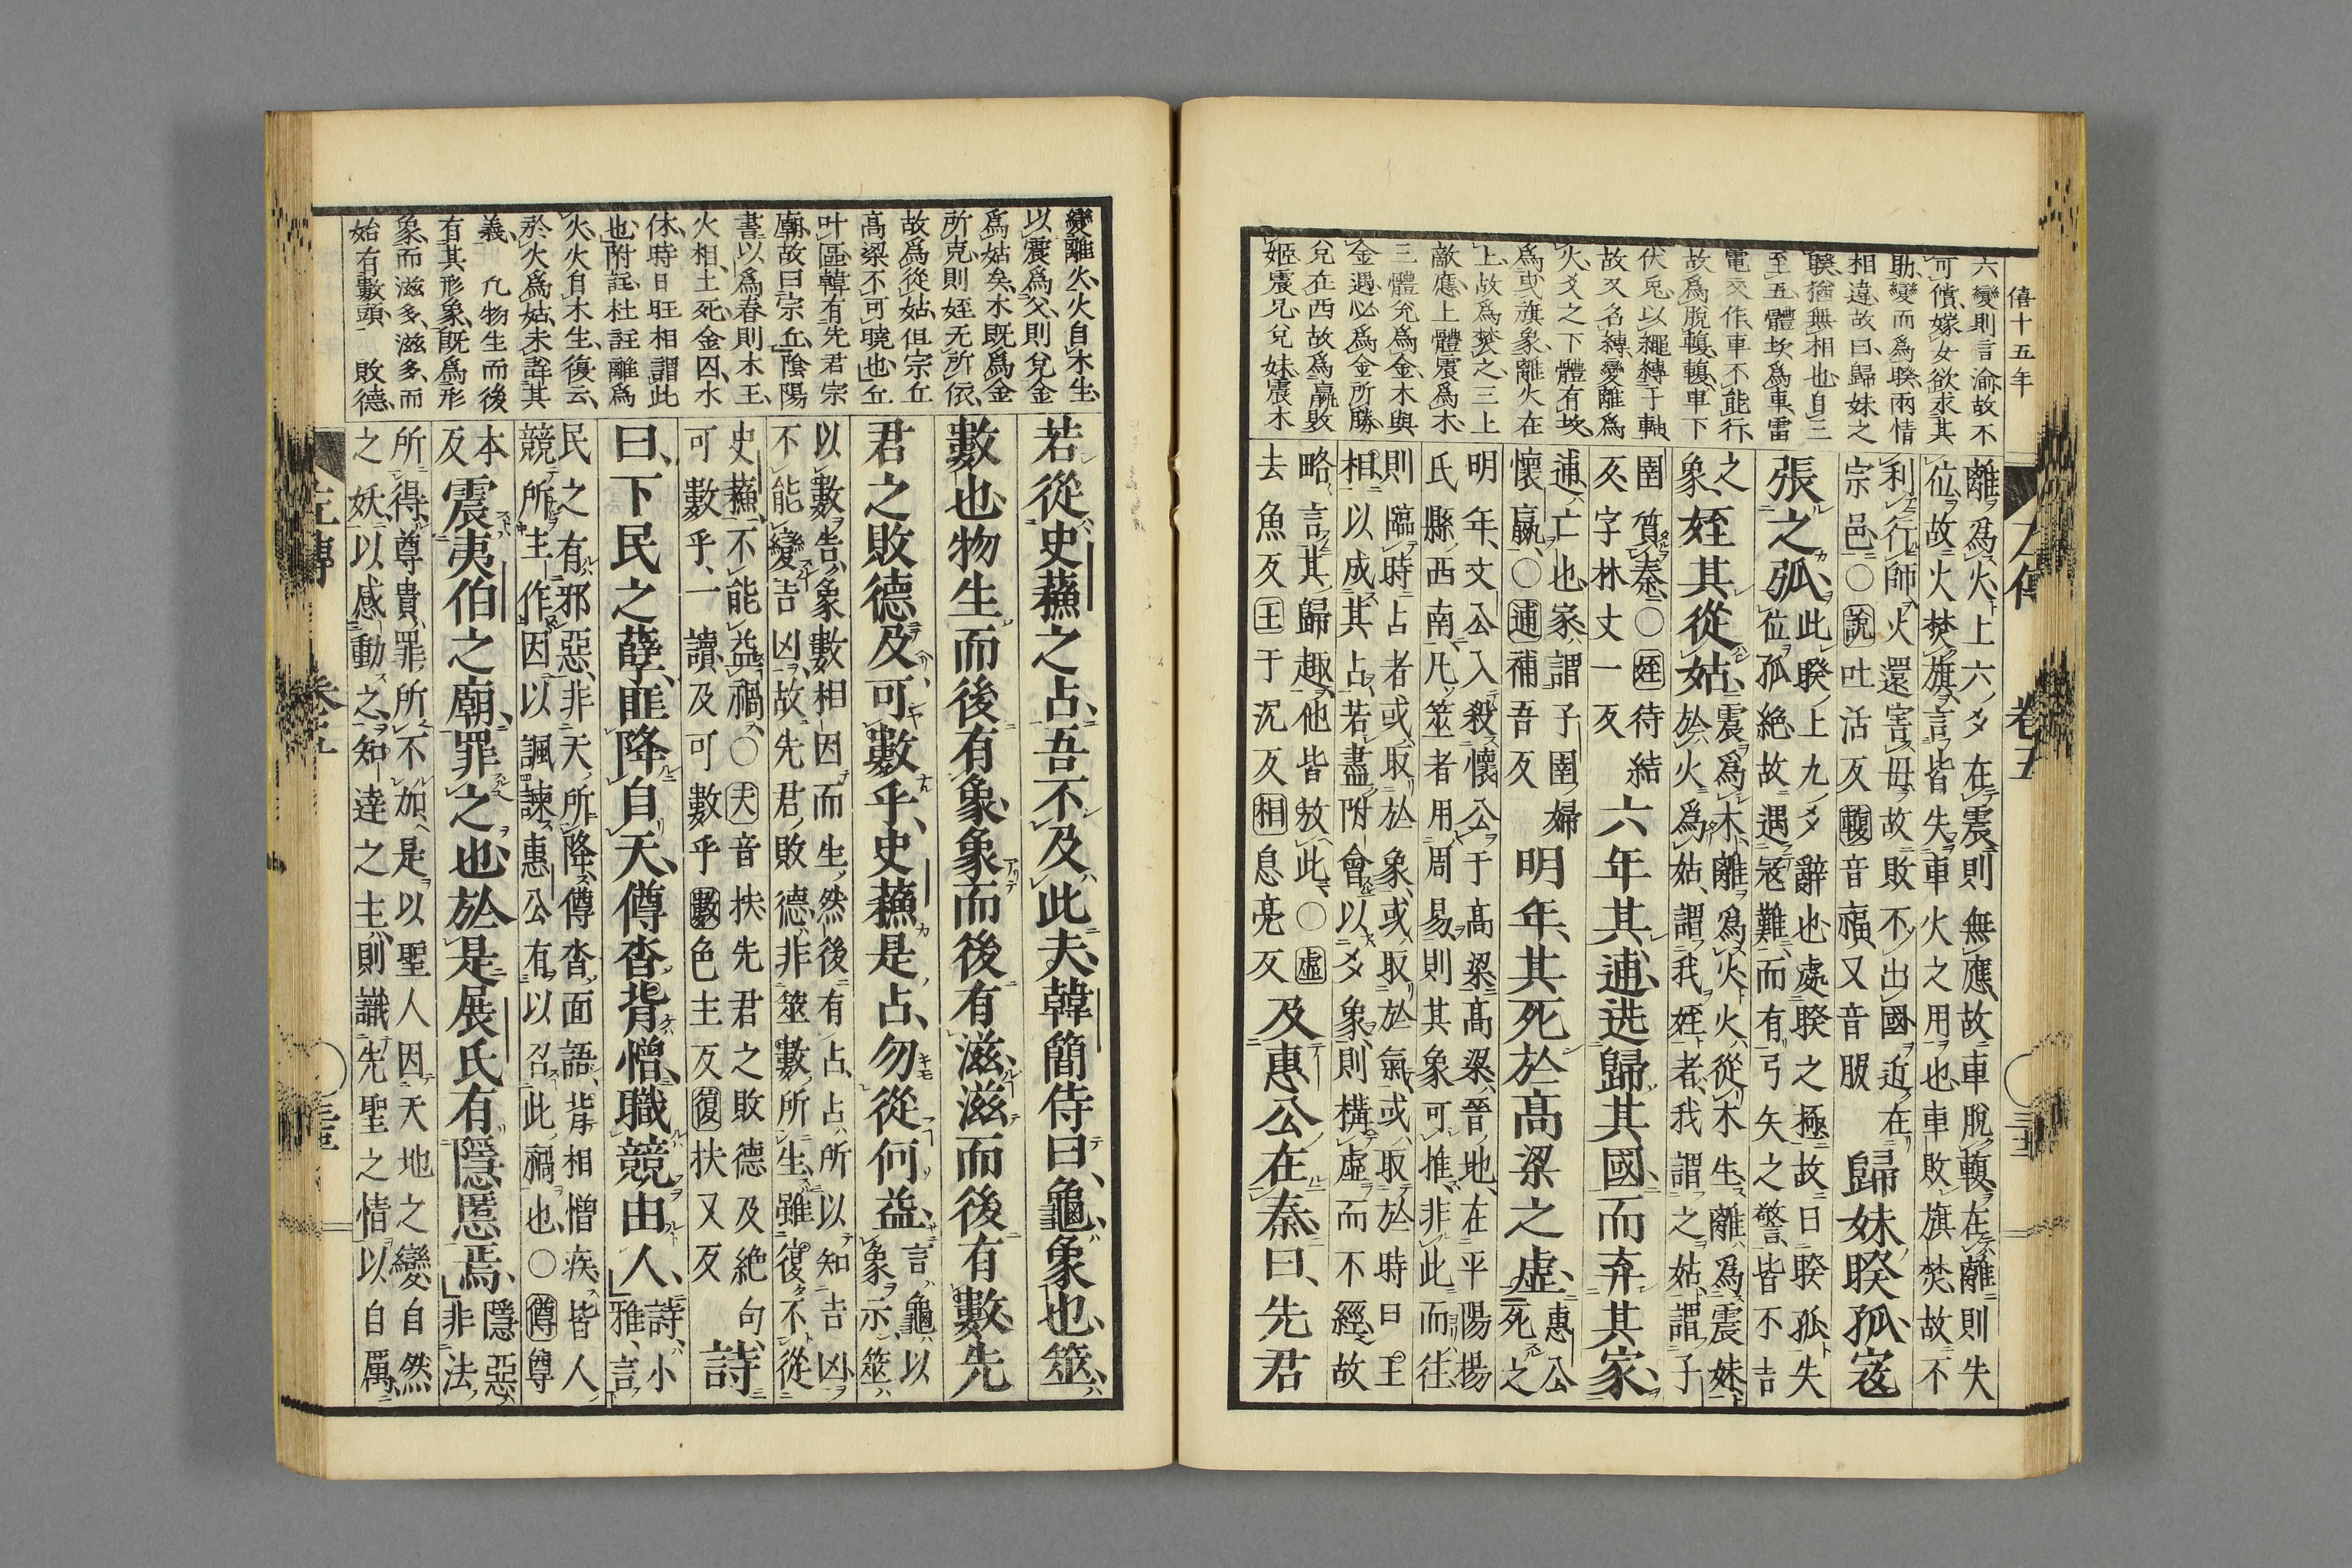 僖十五年
六變則言渝故不
可償嫁女欲求其
助變而爲睽兩情
相違故曰歸妹之
睽猶無相也自三
至五體坎爲車雷
電交作車不能行
故爲脫輹輹車下
伏兎以繩縛于軸
故又名縛變離爲
火爻之下體有坎
爲弍旗象離火在
上故爲焚之三上
敵應上體震爲木
三體兌爲金木與
金遇必爲金所勝
兌在西故爲嬴敗
姬震兄兌妹震木
離爲火上六爻在震則無應故車脫輹在離則失
位故火焚旗言皆失車火之用也車敗旗焚故不
利行師火還害母故敗不出國近在
宗邑○說吐活反輹音福又音服
歸妹睽孤寇
張之弧
此睽上九爻辭也處睽之極故曰睽孤失
位孤絶故遇寇難而有弓矢之警皆不吉
之
象
姪其從姑
震爲木離爲火火從木生離爲震妹
於火爲姑謂我姪者我謂之姑謂子
圉質秦○姪待結
反字林丈一反
六年其逋逃歸其國而弃其家
逋亡也家謂子圉婦
懷嬴○逋補吾反
明年其死於高梁之虛
惠公
死之
明年文公入殺懷公于高梁高梁晉地在平陽楊
氏縣西南凡筮者用周易則其象可推非此而往
則臨時占者或取於象或取於氣或取於時日王
相以成其占若盡附會以爻象則構虛而不經故
略言其歸趣他皆放此○虛
去魚反王于況反相息亮反
及惠公在秦曰先君
左傳 卷五
變離火火自木生
以震爲父則兌金
爲姑矣木既爲金
所克則姪无所依
故爲從姑但宗丘
高梁不可曉也丘
叶區韓有先君宗
廟故曰宗丘陰陽
書以爲春則木王
火相土死金囚水
休時日旺相謂此
也附註杜註離爲
火火自木生復云
於火爲姑未詳其
義 凡物生而後
有其形象既爲形
象而滋多滋多而
始有數頭 敗德
若從史蘇之占吾不及此夫韓簡侍曰龜象也筮
數也物生而後有象象而後有滋滋而後有數先
君之敗德及可數乎史蘇是占勿從何益
言龜以
象示筮
以數告象數相因而生然後有占占所以知吉凶
不能變吉凶故先君敗德非筮數所生雖復不從
史蘇不能益禍○夫音扶先君之敗德及絶句
可數乎一讀及可數乎數色主反復扶又反
詩
曰下民之孽匪降自天僔沓背憎職競由人
詩小
雅言
民之有邪惡非天所降僔沓面語背相憎疾皆人
競所主作因以諷諫惠公有以召此禍也○僔尊
本
反
震夷伯之廟罪之也於是展氏有隱慝焉
隱惡
非法
所得尊貴罪所不加是以聖人因天地之變自然
之妖以感動之知達之主則識先聖之情以自厲
左傳 卷五